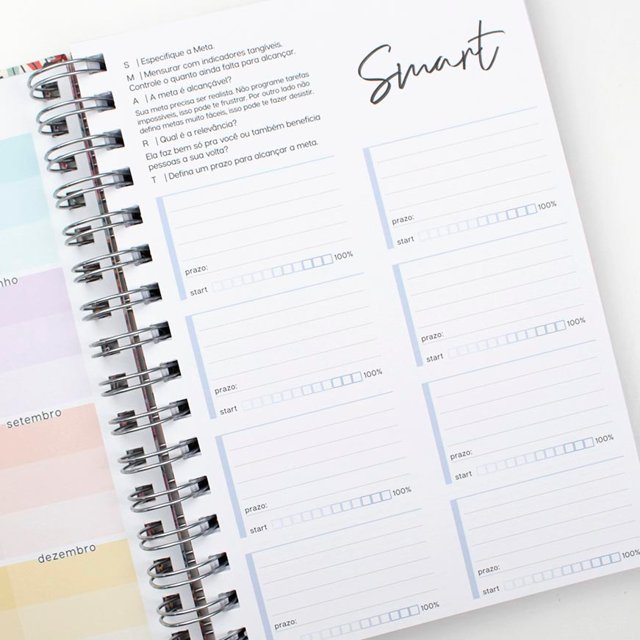 S | Especifique a Meta.
M | Mensurar com indicadores tangíveis.
Controle o quanto ainda falta para alcançar.
A | A meta é alcançável?
Sua meta precisa ser realista. Não programe tarefas
impossíveis, isso pode te frustrar. Por outro lado não
defina metas muito fáceis, isso pode te fazer desistir.
R | Qual é a relevância?
Ela faz bem só pra você ou também beneficia
pessoas a sua volta?
T | Defina um prazo para alcançar a meta.
Smart
prazo:
start 100%
prazo:
start 100%
prazo:
start 100%
prazo:
start 100%
prazo:
start 100%
prazo:
start 100%
prazo:
start 100%
prazo:
start 100%
setembro
dezembro